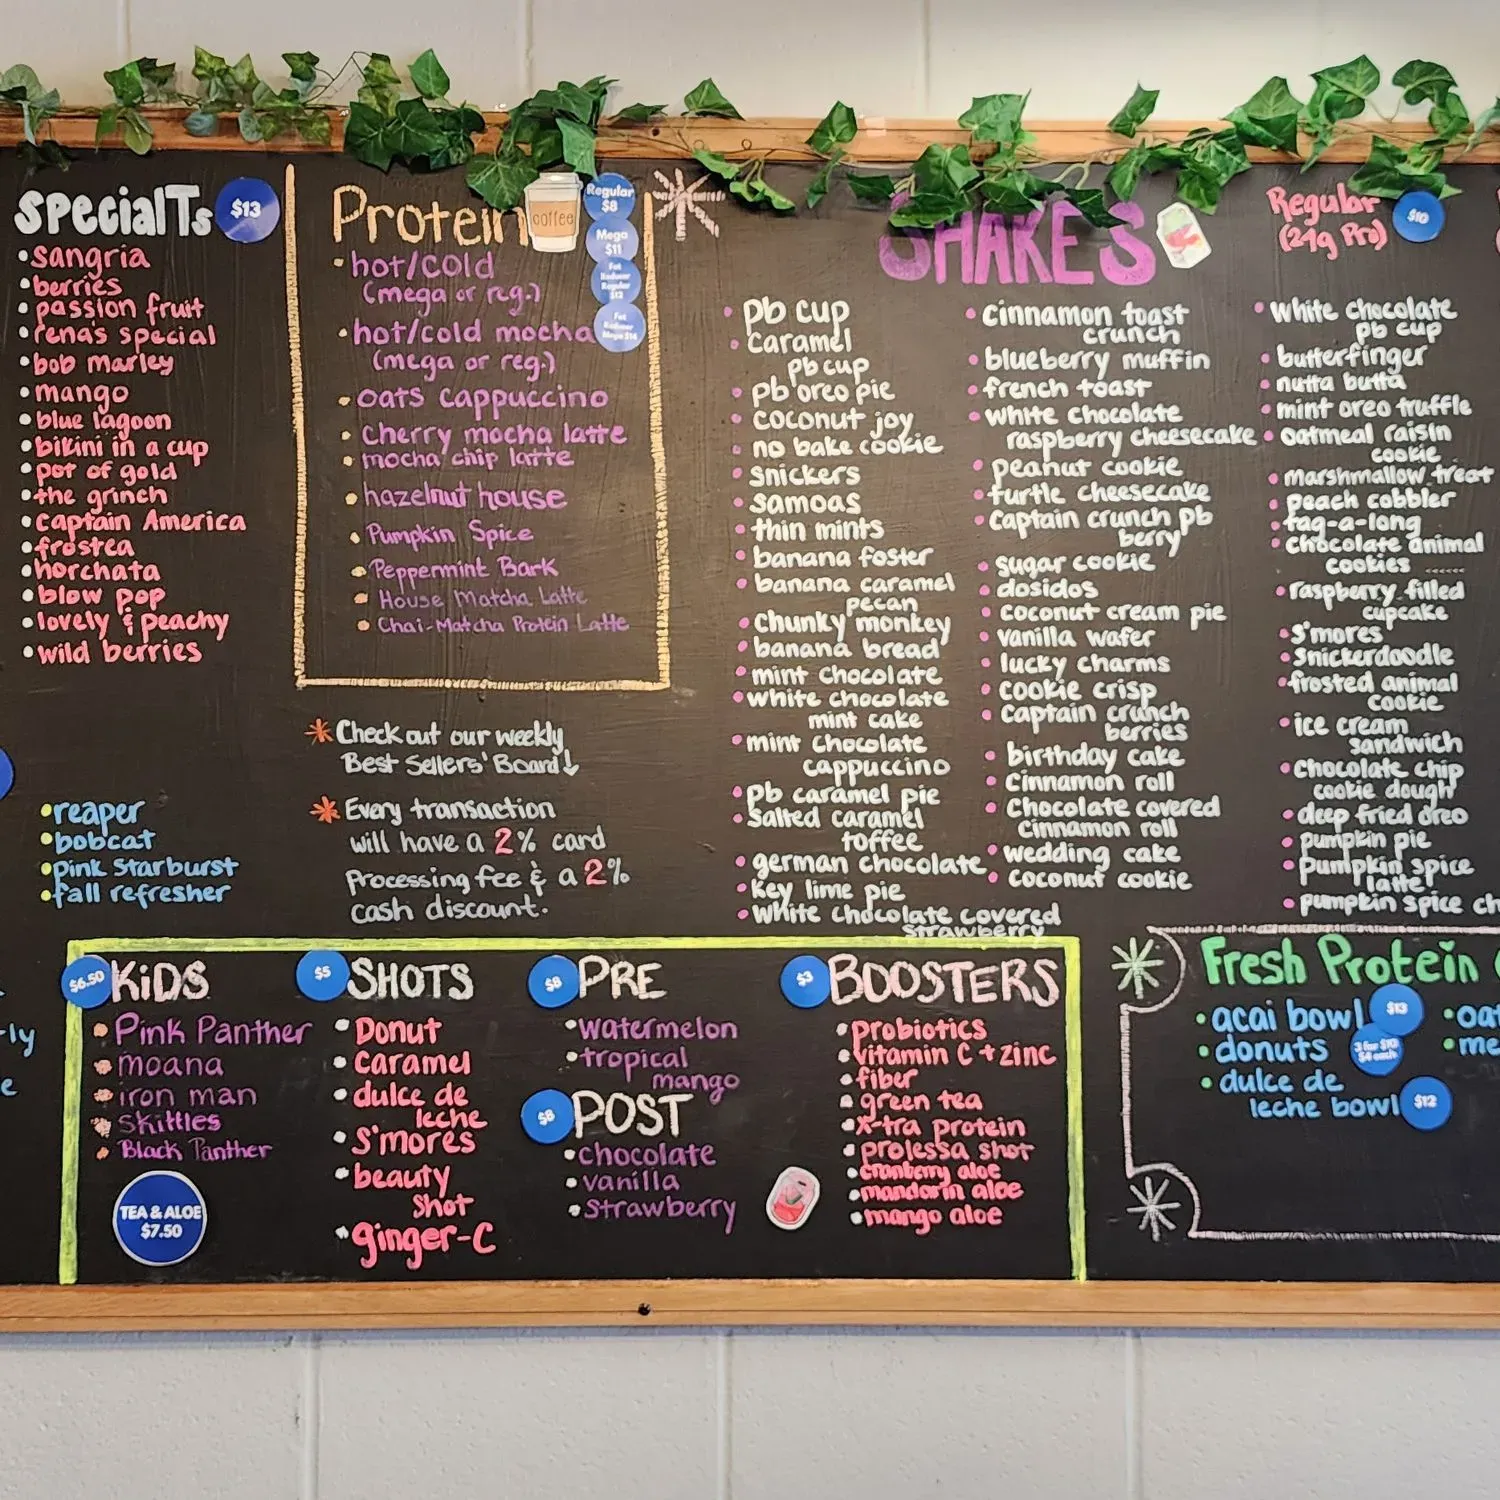 SpecialTs
$13
sangria
berries
passion fruit
rena's special
bob marley
mango
blue lagoon
bikini in a cup
pot of gold
the grinch
captain America
frostea
horchata
blow pop
lovely & peachy
wild berries
reaper
bobcat
pink Starburst
fall refresher
Protein
coffee
Regular
$8
Mega
$11
Fat
Reducer
Regular
$12
Fat
Reducer
hot/cold
(mega or reg.)
hot/cold mocha
(mega or reg.)
oats cappuccino
Cherry mocha latte
mocha chip latte
hazelnut house
Pumpkin Spice
Peppermint Bark
House Matcha Latte
Chai-Matcha Protein Latte
* Check out our weekly
Best Sellers' Board↓
* Every transaction
will have a 2% card
Processing fee & a 2%
cash discount.
SHAKES
Regular
(24g Pro)
$10
pb cup
Caramel
pb cup
pb oreo pie
coconut joy
no bake cookie
snickers
samoas
thin mints
banana foster
banana caramel
pecan
chunky monkey
banana bread
mint chocolate
white chocolate
mint cake
mint chocolate
cappuccino
pb caramel pie
salted caramel
toffee
german chocolate
key lime pie
white chocolate covered
strawberry
cinnamon toast
crunch
blueberry muffin
french toast
white chocolate
raspberry cheesecake
peanut cookie
turtle cheesecake
captain crunch pb
berry
sugar cookie
dosidos
coconut cream pie
vanilla wafer
lucky charms
cookie crisp
captain crunch
berries
birthday cake
cinnamon roll
chocolate covered
cinnamon roll
wedding cake
coconut cookie
white chocolate
pb cup
butterfinger
nutta butta
mint oreo truffle
oatmeal raisin
cookie
marshmallow treat
peach cobbler
tag-a-long
chocolate animal
cookies
raspberry filled
cupcake
s'mores
snickerdoodle
frosted animal
cookie
ice cream
sandwich
chocolate chip
cookie dough
deep fried oreo
pumpkin pie
pumpkin spice
latte
pumpkin spice ch
$6.50
KiDS
Pink Panther
moana
iron man
skittles
Black Panther
TEA & ALOE
$7.50
$5
SHOTS
Donut
Caramel
dulce de
leche
S'mores
beauty
shot
ginger-C
$8
PRE
watermelon
tropical
mango
$8
POST
chocolate
vanilla
strawberry
$3
BOOSTERS
probiotics
vitamin C + zinc
fiber
green tea
x-tra protein
prolessa shot
cranberry aloe
mandarin aloe
mango aloe
Fresh Protein
acai bowl
$13
donuts
3 for $10
$4 each
dulce de
leche bowl
$12
oat
me